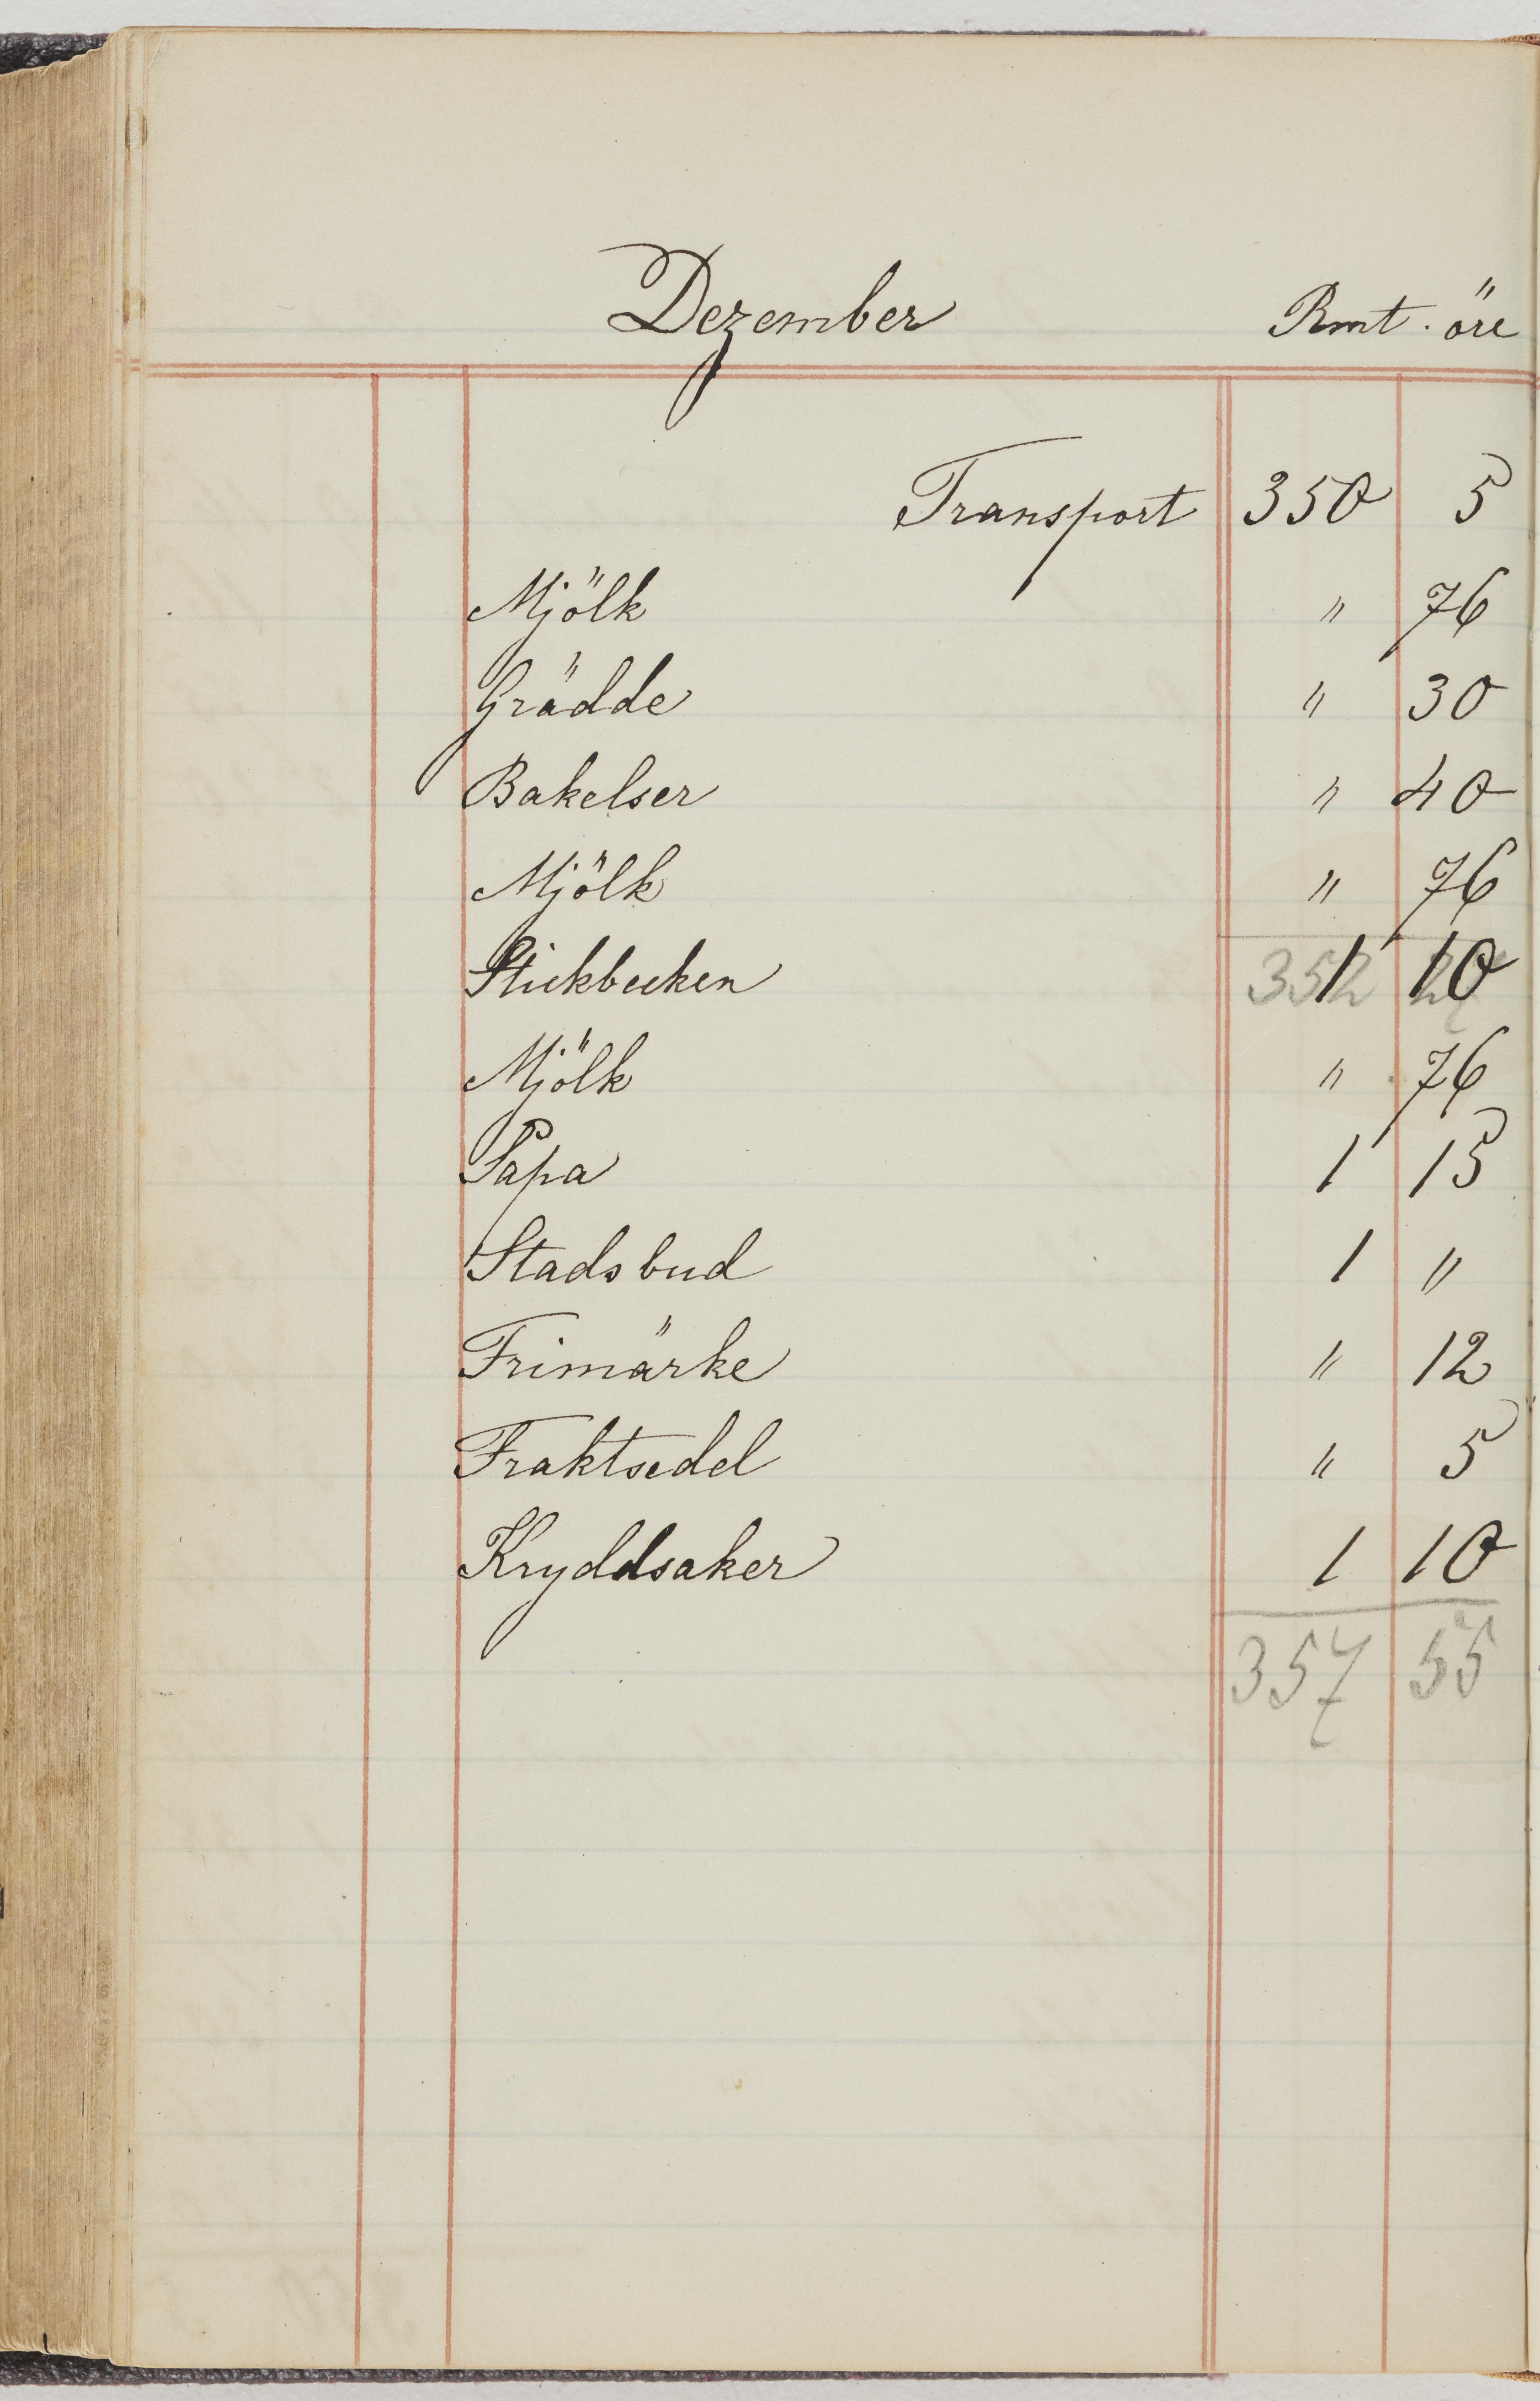 Dezember Rmt. öre
Transport 350 5
Mjölk " 76
Grädde " 30
Bakelser " 40
Mjölk " 76
Stickbecken 1 10
352
Mjölk " 76
Papa 1 15
Stadsbud 1 "
Frimärke " 12
Fraktsedel " 5
Kryddsaker 1 10
357 55